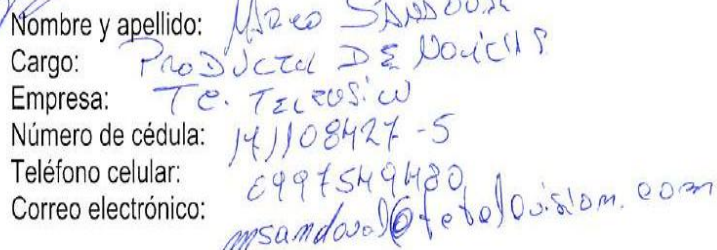 Nombre y apellido: Marco Sandoval
Cargo: Productor de Noticias
Empresa: TC. Televisión
Número de cédula: 171108427-5
Teléfono celular: 0997549480
Correo electrónico: msandoval@tctelevision.com